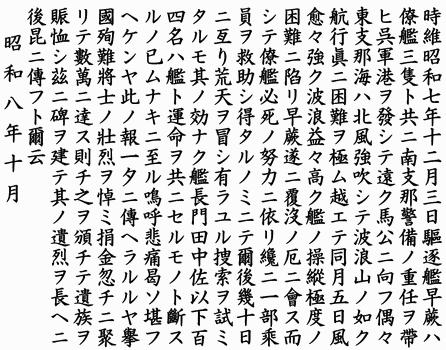 時維昭和七年十二月三日驅逐艦早蕨ハ
僚艦三隻ト共ニ南支那警備ノ重任ヲ帶
ヒ呉軍港ヲ發シテ遠ク馬公ニ向フ偶々
東支那海ハ北風強吹シテ波浪山ノ如ク
航行眞ニ困難ヲ極ム越エテ同月五日風
愈々強ク波浪益々高ク艦ノ操縱極度ノ
困難ニ陷リ早蕨遂ニ覆沒ノ厄ニ會ス而
シテ僚艦必死ノ努力ニ依リ纔ニ一部乘
員ヲ救助シ得タルノミニテ爾後幾十日
ニ亙リ荒天ヲ冒シ有ラユル搜索ヲ試ミ
タルモ其ノ効ナク艦長門田中佐以下百
四名ハ艦ト運命ヲ共ニセルモノト斷ス
ルノ已ムナキニ至ル嗚呼悲痛曷ソ堪フ
ヘケンヤ此ノ報一タニ傳ヘラルルヤ擧
國殉難將士ノ壯烈ヲ悼ミ捐金忽チニ聚
リテ數萬ニ達ス則チ之ヲ頒チテ遺族ヲ
賑恤シ茲ニ碑ヲ建テ其ノ遺烈ヲ長ヘニ
後昆ニ傳フト爾云
昭和八年十月